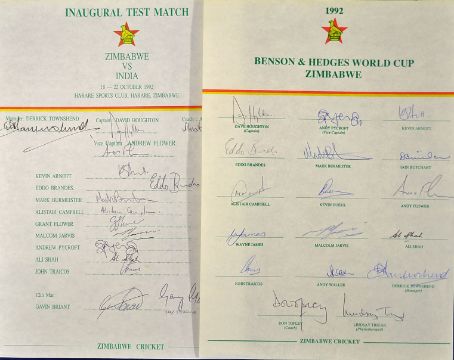 INAUGURAL TEST MATCH
ZIMBABWE
VS
INDIA
18 — 22 OCTOBER 1992
HARARE SPORTS CLUB, HARARE, ZIMBABWE
Manager DERRICK TOWNSHEND Captain DAVID HOUGHTON
Vice Captain ANDREW FLOWER
KEVIN ARNOTT
EDDO BRANDES
Eddo Brandes
MARK BURMESTER
ALISTAIR CAMPBELL
Alistair Campbell
GRANT FLOWER
MALCOM JARVIS
ANDREW PYCROFT
ALI SHAH
Ali Shah
JOHN TRAICOS
12th Man
GAVIN BRIANT
ZIMBABWE CRICKET
1992
BENSON & HEDGES WORLD CUP
ZIMBABWE
DAVE HOUGHTON
(Captain)
ANDY PYCROFT
(Vice Captain)
KEVIN ARNOTT
Eddo Brandes
EDDO BRANDES
MARK BURMESTER
IAIN BUTCHART
ALISTAIR CAMPBELL
KEVIN DUERS
ANDY FLOWER
Ali Shah
WAYNE JAMES
MALCOLM JARVIS
ALI SHAH
JOHN TRAICOS
ANDY WALLER
DERRICK TOWNSHEND
(Manager)
DON TOPLEY
(Coach)
ZIMBABWE CRICKET